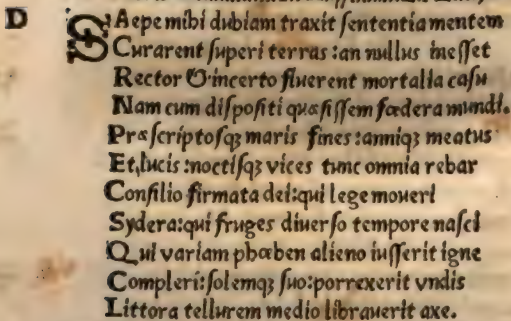 D SAepe mihi dubiam traxit ſententia mentem
Curarent ſuperi terras:an nullus ineſſet
Rector & incerto fluerent mortalia caſu
Nam cum diſpoſiti quæſiſſem fœdera mundi.
Præſcriptoſqꝫ maris fines:anniqꝫ meatus
Et,lucis:noctiſqꝫ vices tunc omnia rebar
Conſilio firmata dei:qui lege moueri
Sydera:qui fruges diuerſo tempore naſci
Qui variam phœben alieno iuſſerit igne
Compleri:ſolemqꝫ ſuo:porrexerit vndis
Littora tellurem medio librauerit axe.